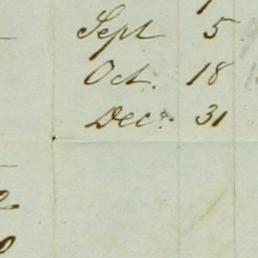 Sept 5
Oct. 18
Decr. 31